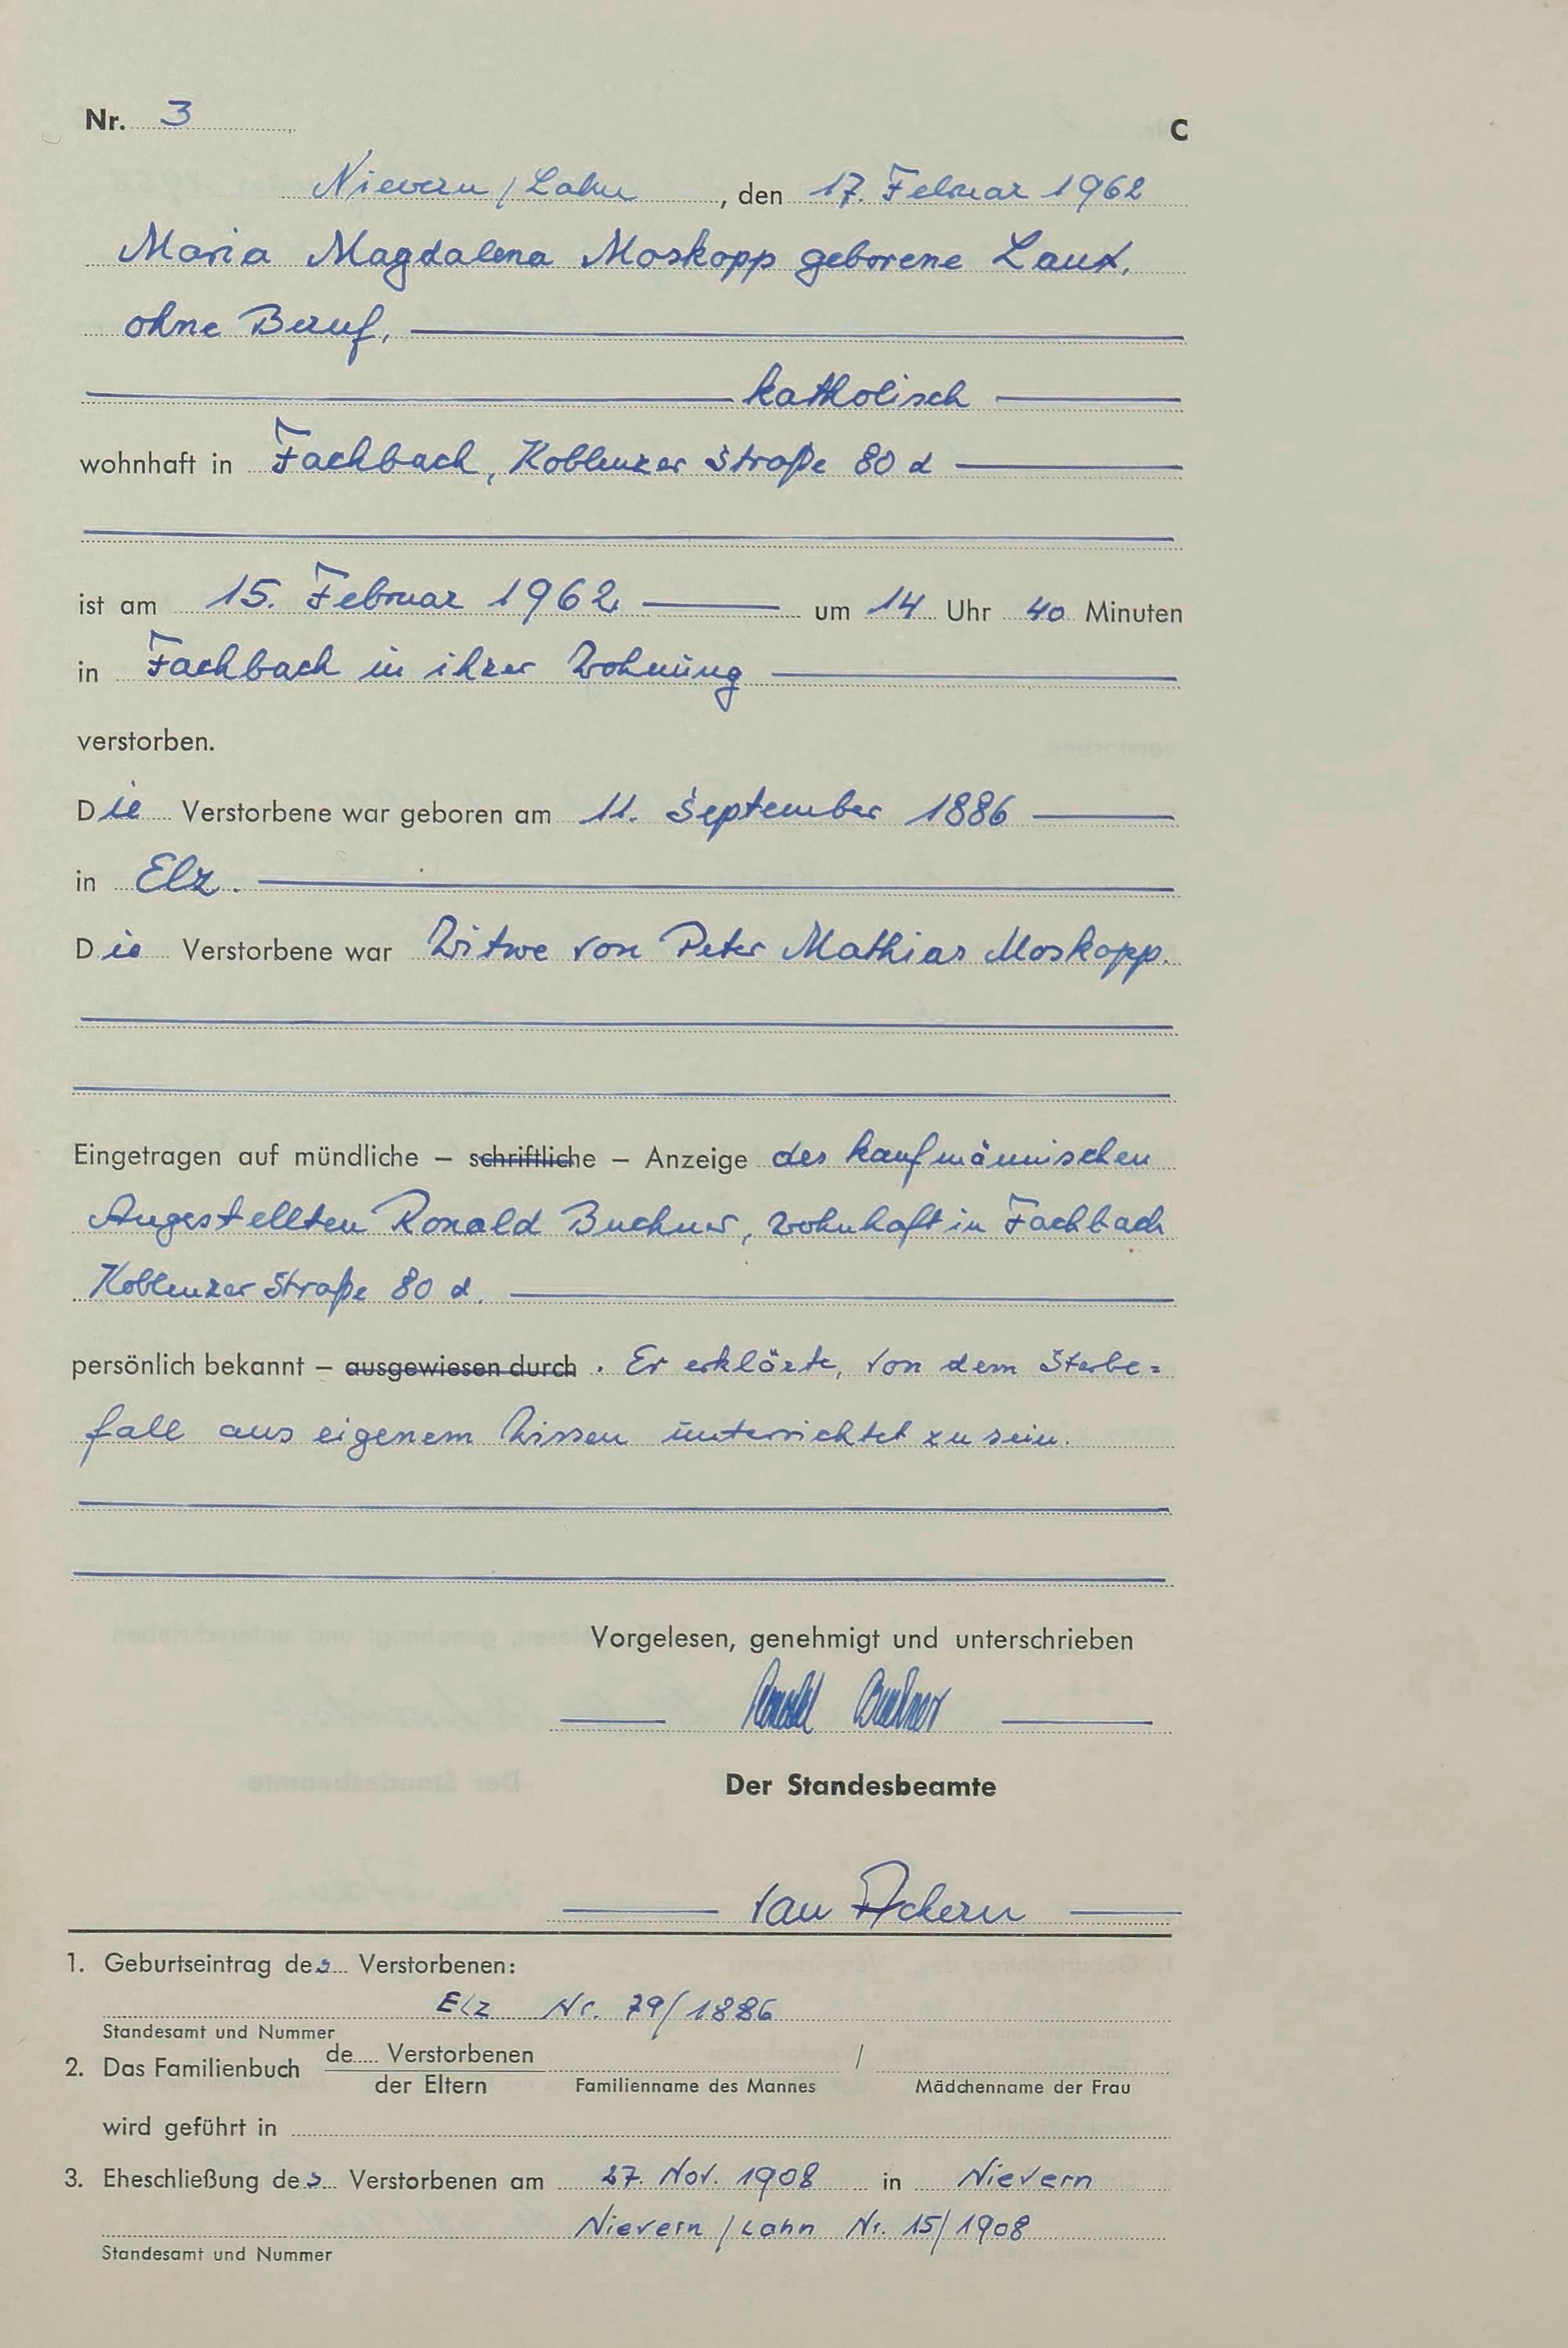 Nr. 3
C
Nievern / Lahn, den 17. Februar 1962
Maria Magdalena Moskopp geborene Laux,
ohne Beruf,
katholisch
wohnhaft in Fachbach, Koblenzer Straße 80 d
ist am 15. Februar 1962 um 14 Uhr 40 Minuten
in Fachbach in ihrer Wohnung
verstorben.
Die Verstorbene war geboren am 11. September 1886
in Elz.
Die Verstorbene war Witwe von Peter Mathias Moskopp.
Eingetragen auf mündliche – schriftliche – Anzeige des kaufmännischen
Angestellten Ronald Buchner, wohnhaft in Fachbach
Koblenzer Straße 80 d.
persönlich bekannt – ausgewiesen durch . Er erklärte, von dem Sterbe=
fall aus eigenem Wissen unterrichtet zu sein.
Vorgelesen, genehmigt und unterschrieben
Ronald Buchner
Der Standesbeamte
van Ackern
1. Geburtseintrag der Verstorbenen:
Elz Nr. 79/1886
Standesamt und Nummer
2. Das Familienbuch de Verstorbenen /
der Eltern Familienname des Mannes Mädchenname der Frau
wird geführt in
3. Eheschließung der Verstorbenen am 27. Nov. 1908 in Nievern
Nievern / Lahn Nr. 15/1908
Standesamt und Nummer